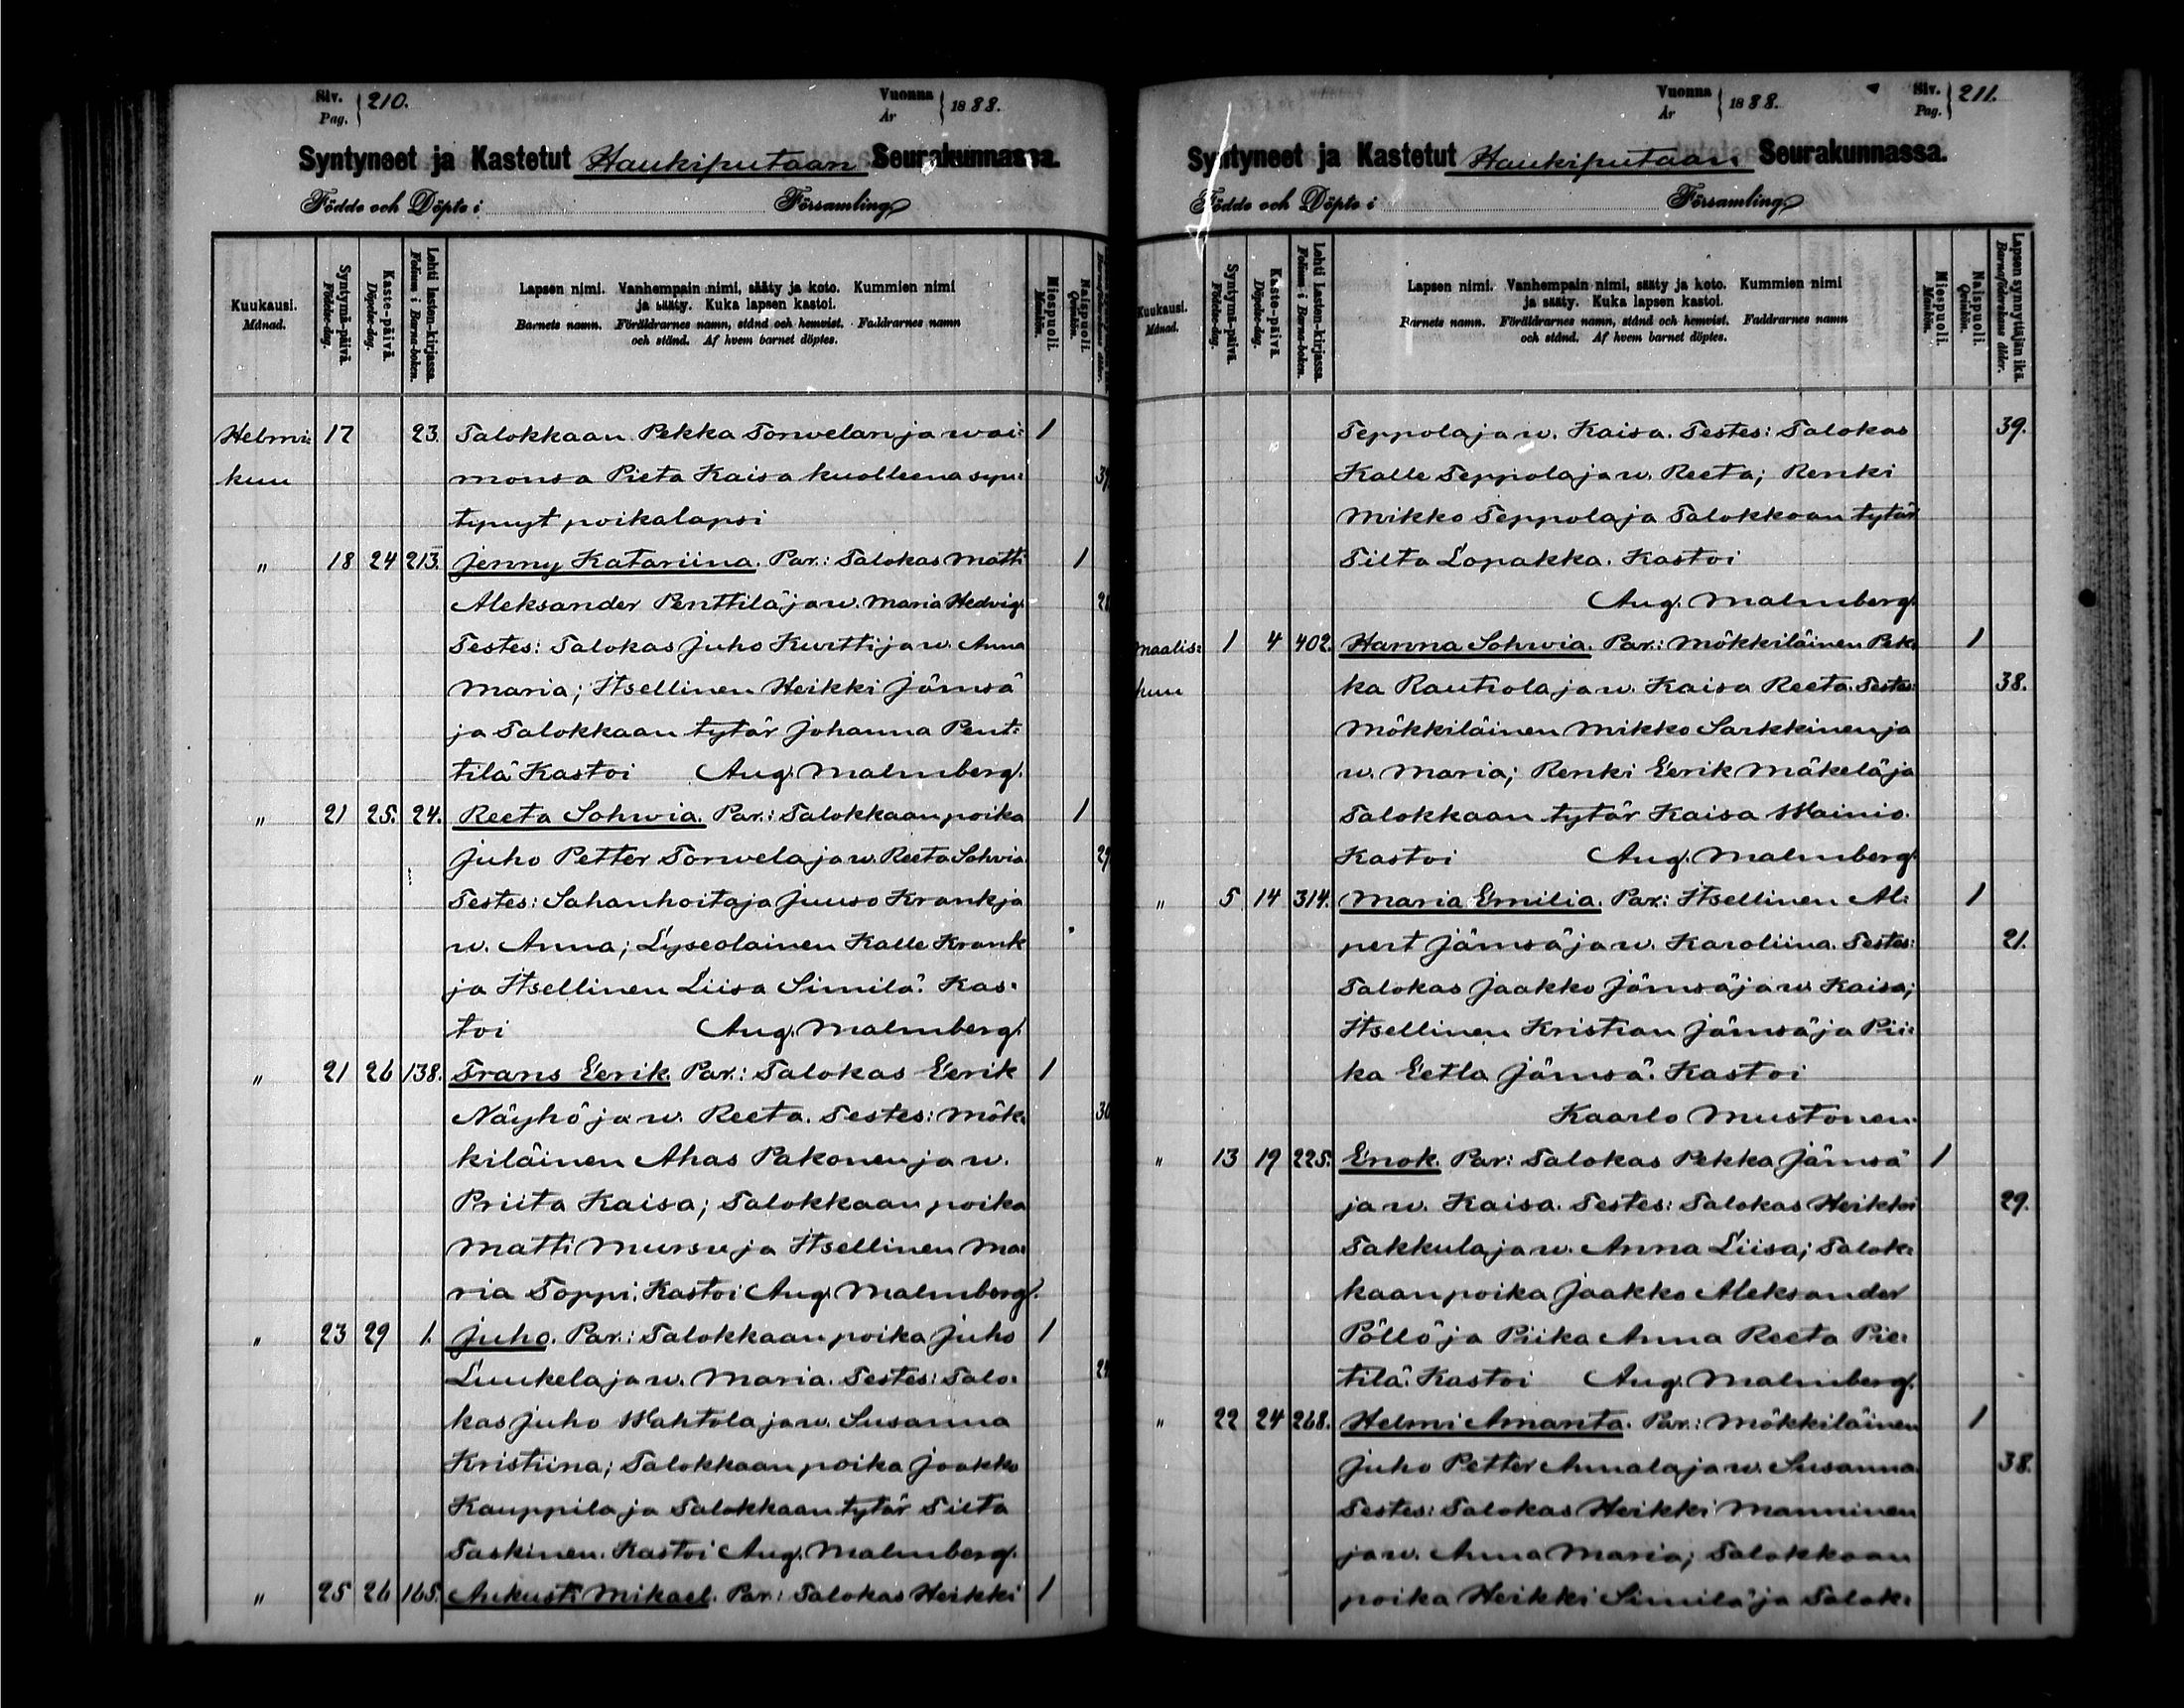 Siv. Pag. 210. Vuonna År 1888.
Syntyneet ja Kastetut Haukiputaan Seurakunnassa.
Födde och Döpte i Församling
Kuukausi. Månad. Syntymä-päivä. Födelse-dag. Kaste-päivä. Döpelse-dag. Lehti lasten-kirjassa. Folium i Barna-boken. Lapsen nimi. Vanhempain nimi, sääty ja koto. Kummien nimi ja sääty. Kuka lapsen kastoi. Barnets namn. Föräldrarnes namn, stånd och hemvist. Faddrarnes namn och stånd. Af hvem barnet döptes. Miespuoli. Mankön. Naispuoli. Qvinkön.
Helmi: 17 23. Talokkaan Pekka Torwelan ja wai: 1
kuu monsa Pieta Kaisa kuolleena syn:
tynyt poikalapsi
" 18 24 213. Jenny Katariina. Par.: Talokas Matti 1
Aleksander Penttilä ja w. Maria Hedvig.
Testes: Talokas Juho Kurtti ja w. Anna
Maria; Itsellinen Heikki Jämsä
ja Talokkaan tytär Johanna Pent:
tilä Kastoi Aug. Malmberg.
" 21 25. 24. Reeta Sohwia. Par.: Talokkaan poika 1
Juho Petter Torwela ja w. Reeta Sohvia
Testes: Sahanhoitaja Juuso Krank ja
w. Anna; Lyseolainen Kalle Krank
ja Itsellinen Liisa Similä. Kas:
toi Aug. Malmberg.
" 21 26 138. Frans Eerik. Par.: Talokas Eerik 1
Näyhö ja w. Reeta. Testes: Mök:
kiläinen Ahas Pakonen ja w.
Priita Kaisa; Talokkaan poika
Matti Mursu ja Itsellinen Ma:
ria Toppi. Kastoi Aug. Malmberg.
" 23 29 1. Juho. Par.: Talokkaan poika Juho 1
Luukela ja w. Maria. Testes: Talo:
kas Juho Wahtola ja w. Susanna
Kristiina; Talokkaan poika Jaakko
Kauppila ja Talokkaan tytär Tilta
Taskinen. Kastoi Aug. Malmberg.
" 25 26 165. Aukusti Mikael. Par.: Talokas Heikki 1
Vuonna År 1888. Siv. Pag. 211.
Syntyneet ja Kastetut Haukiputaan Seurakunnassa.
Födde och Döpte i Församling
Kuukausi. Månad. Syntymä-päivä. Födelse-dag. Kaste-päivä. Döpelse-dag. Lehti Lasten-kirjassa. Folium i Barna-boken. Lapsen nimi. Vanhempain nimi, sääty ja koto. Kummien nimi ja sääty. Kuka lapsen kastoi. Barnets namn. Föräldrarnes namn, stånd och hemvist. Faddrarnes namn och stånd. Af hvem barnet döptes. Miespuoli. Mankön. Naispuoli. Qvinkön. Lapsen synnyttäjän ikä. Barnaföderskans ålder.
Seppola ja w. Kaisa. Testes: Talokas 39.
Kalle Seppola ja w. Reeta; Renki
Mikko Seppola ja Talokkaan tytär
Tilta Lopakka. Kastoi
Aug. Malmberg.
Maalis: 1 4 402. Hanna Sohwia. Par.: Mökkiläinen Pek: 1
kuu ka Rautiola ja w. Kaisa Reeta. Testes: 38.
Mökkiläinen Mikko Sarkkinen ja
w. Maria; Renki Eerik Mäkelä ja
Talokkaan tytär Kaisa Wainio.
Kastoi Aug. Malmberg.
" 5 14 314. Maria Emilia. Par.: Itsellinen Al: 1
pert Jämsä ja w. Karoliina. Testes: 21.
Talokas Jaakko Jämsä ja w. Kaisa;
Itsellinen Kristian Jämsä ja Pii:
ka Eetla Jämsä. Kastoi
Kaarlo Mustonen.
" 13 19 225. Enok. Par: Talokas Pekka Jämsä 1
ja w. Kaisa. Testes: Talokas Heikki 29.
Takkula ja w. Anna Liisa; Talok:
kaan poika Jaakko Aleksander
Pöllö ja Piika Anna Reeta Pie:
tilä. Kastoi Aug. Malmberg.
" 22 24 268. Helmi Amanta. Par.: Mökkiläinen 1
Juho Petter Annala ja w. Susanna. 38.
Testes: Talokas Heikki Manninen
ja w. Anna Maria; Talokkaan
poika Heikki Similä ja Talok: